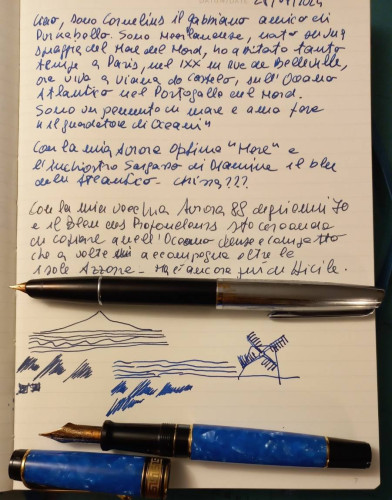 Ciao, sono Cornelius il gabbiano amico di
Portobello. Sono
spiaggia del Mare del Nord, ho abitato tanto
tempo a Paris, nel XX in Rue de Belleville,
ora vivo a Viana do Castelo, sull'Oceano
Atlantico nel Portogallo del Nord.
Sono un pennuto di mare e amo fare
"il guardatore di Oceani"
Con la mia Aurora Optima "Mare" e
l'inchiostro Sargasso di Diamine il blu
dell'Atlantico - chissà???
Con la mia vecchia Aurora 88 degli anni 70
e il Bleu des Profondeurs sto cercando
di copiare quell'Oceano denso e compatto
che a volte mi accompagna oltre le
isole Azzorre - ma è ancora più difficile.